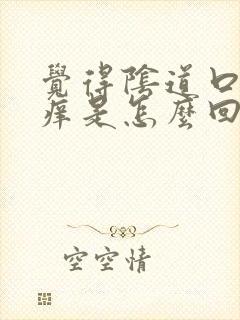 覺得陰道口
癢是怎麼回
空空情